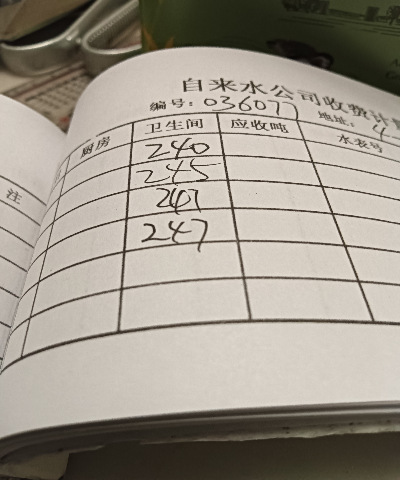 自来水公司收费计
编号：036077 地址：4-
厨房 卫生间 应收吨 水表号
240
245
247
247
注